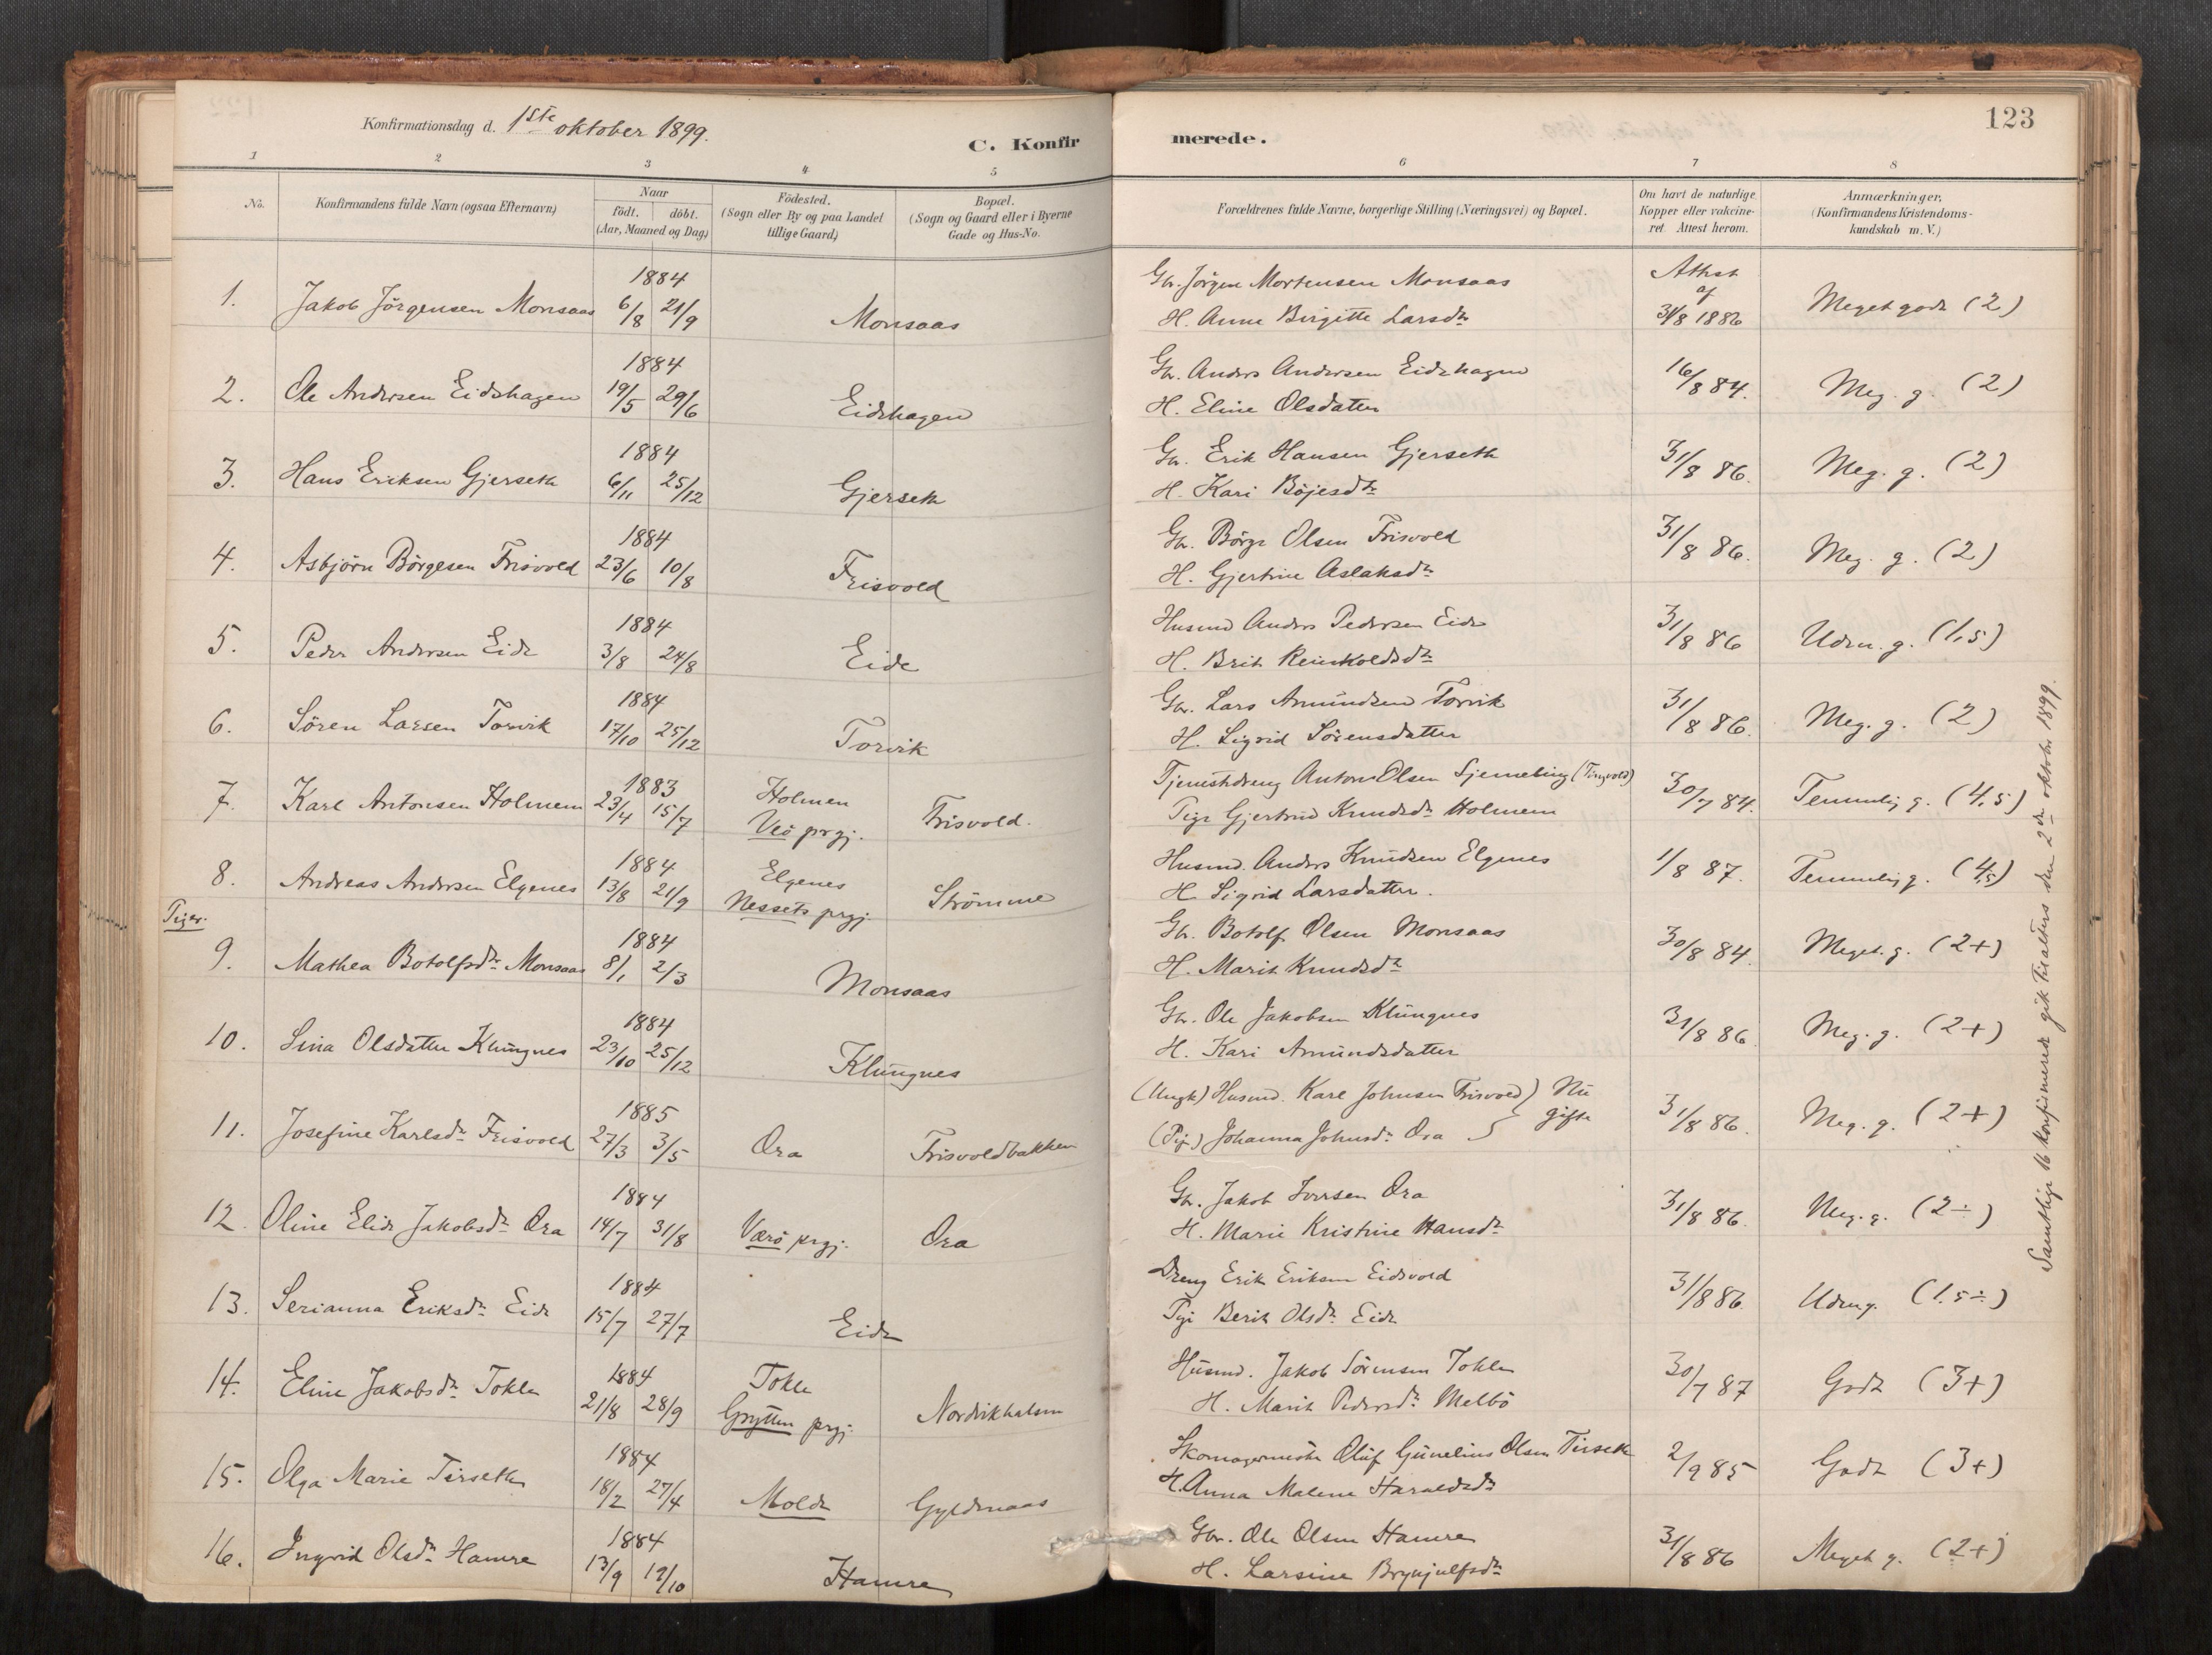 Konfirmationsdag d. 1ste oktober 1899.
C. Konfirmerede.
123
1 2 3 4 5 6 7 8
No.
Konfirmandens fulde Navn (ogsaa Efternavn)
Naar
födt. döbt.
(Aar, Maaned og Dag)
Födested.
(Sogn eller By og paa Landet
tillige Gaard)
Bopæl.
(Sogn og Gaard eller i Byerne
Gade og Hus-No.
Forældrenes fulde Navne, borgerlige Stilling (Næringsvei) og Bopæl.
Om havt de naturlige
Kopper eller vakcine-
ret. Attest herom.
Anmærkninger,
(Konfirmandens Kristendoms-
kundskab m. V.)
1884 Gbr. Jörgen Mortensen Monsaas Attest af
1. Jakob Jörgensen Monsaas 6/8 21/9 Monsaas H. Anne Birgitte Larsdtr 31/8 1886 Meget godt (2)
1884 Gbr. Anders Andersen Eidshagen
2. Ole Andersen Eidshagen 19/5 29/6 Eidshagen H. Eline Olsdatter 16/8 84. Meg. g. (2)
1884 Gbr. Erik Hansen Gjerseth
3. Hans Eriksen Gjerseth 6/11 25/12 Gjerseth H. Kari Böjesdtr 31/8 86. Meg. g. (2)
1884 Gbr. Börge Olsen Frisvold
4. Asbjörn Börgesen Frisvold 23/6 10/8 Frisvold H. Gjertine Aslaksdtr 31/8 86. Meg. g. (2)
1884 Husmd Anders Pedersen Eide
5. Peder Andersen Eide 3/8 24/8 Eide H. Brit Reinholdsdtr 31/8 86 Udm. g. (1,5)
1884 Gbr. Lars Amundsen Torvik
6. Sören Larsen Torvik 17/10 25/12 Torvik H. Sigrid Sörensdatter 31/8 86. Meg. g. (2)
1883 Holmen Tjenestdreng Anton Olsen (Tingvold)
7. Karl Antonsen Holmem 23/4 15/7 Veö prgj. Frisvold. Pige Gjertrud Knudsdtr Holmem 30/7 84. Temmelig g. (4,5)
1884 Elgenes Husmd. Anders Knudsen Elgenes
8. Andreas Andersen Elgenes 13/8 21/9 Nessets prgj. Strömme H. Sigrid Larsdatter. 1/8 87. Temmelig g. (4,5)
Piger.
1884 Gbr. Botolf Olsen Monsaas
9. Mathea Botolfsdtr Monsaas 8/1 2/3 Monsaas H. Marit Knudsdtr 30/8 84. Meget. g. (2+)
1884 Gbr. Ole Jakobsen Klungnes
10. Sina Olsdatter Klungnes 23/10 25/12 Klungnes H. Kari Amundsdatter 31/8 86 Meg. g. (2+)
1885 (Ungk) Husmd. Karl Johnsen Frisvold } Nu
11. Josefine Karlsdtr Frisvold 27/3 3/5 Ora Frisvoldbakken (Pige) Johanna Johnsdtr Ora gifte 31/8 86. Meg. g. (2+)
1884 Gbr. Jakob Iversen Ora
12. Oline Elide Jakobsdtr Ora 14/7 31/8 Værö prgj. Ora H. Marie Kristine Hansdtr 31/8 86. Meg. g. (2÷)
1884 Dreng Erik Eriksen Eidsvold
13. Serianna Eriksdtr Eide 15/7 27/7 Eide Pige Berit Olsdtr Eide 31/8 86 Udm g. (1.5÷)
1884 Tokle Husmd. Jakob Sörensen Tokle
14. Eline Jakobsdtr Tokle 21/8 28/9 Grytten prgj. Nordvikhalsen H. Marit Pedersdtr Melbö 30/7 87 Godt (3+)
1884 Skomagermester Oluf Gunelius Olsen Tirseth
15. Olga Marie Tirseth 18/2 27/4 Molde Gyldenaas H. Anna Malene Haraldsdtr 2/9 85 Godt (3+)
1884 Gbr. Ole Olsen Hamre
16. Ingrid Olsdtr Hamre 13/9 12/10 Hamre H. Larsine Brynjulfsdtr 31/8 86 Meget g. (2+)
Samtlige 16 konfirmerede gik til alters den 2den oktober 1899.